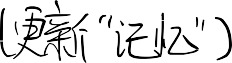 (更新“记忆”)